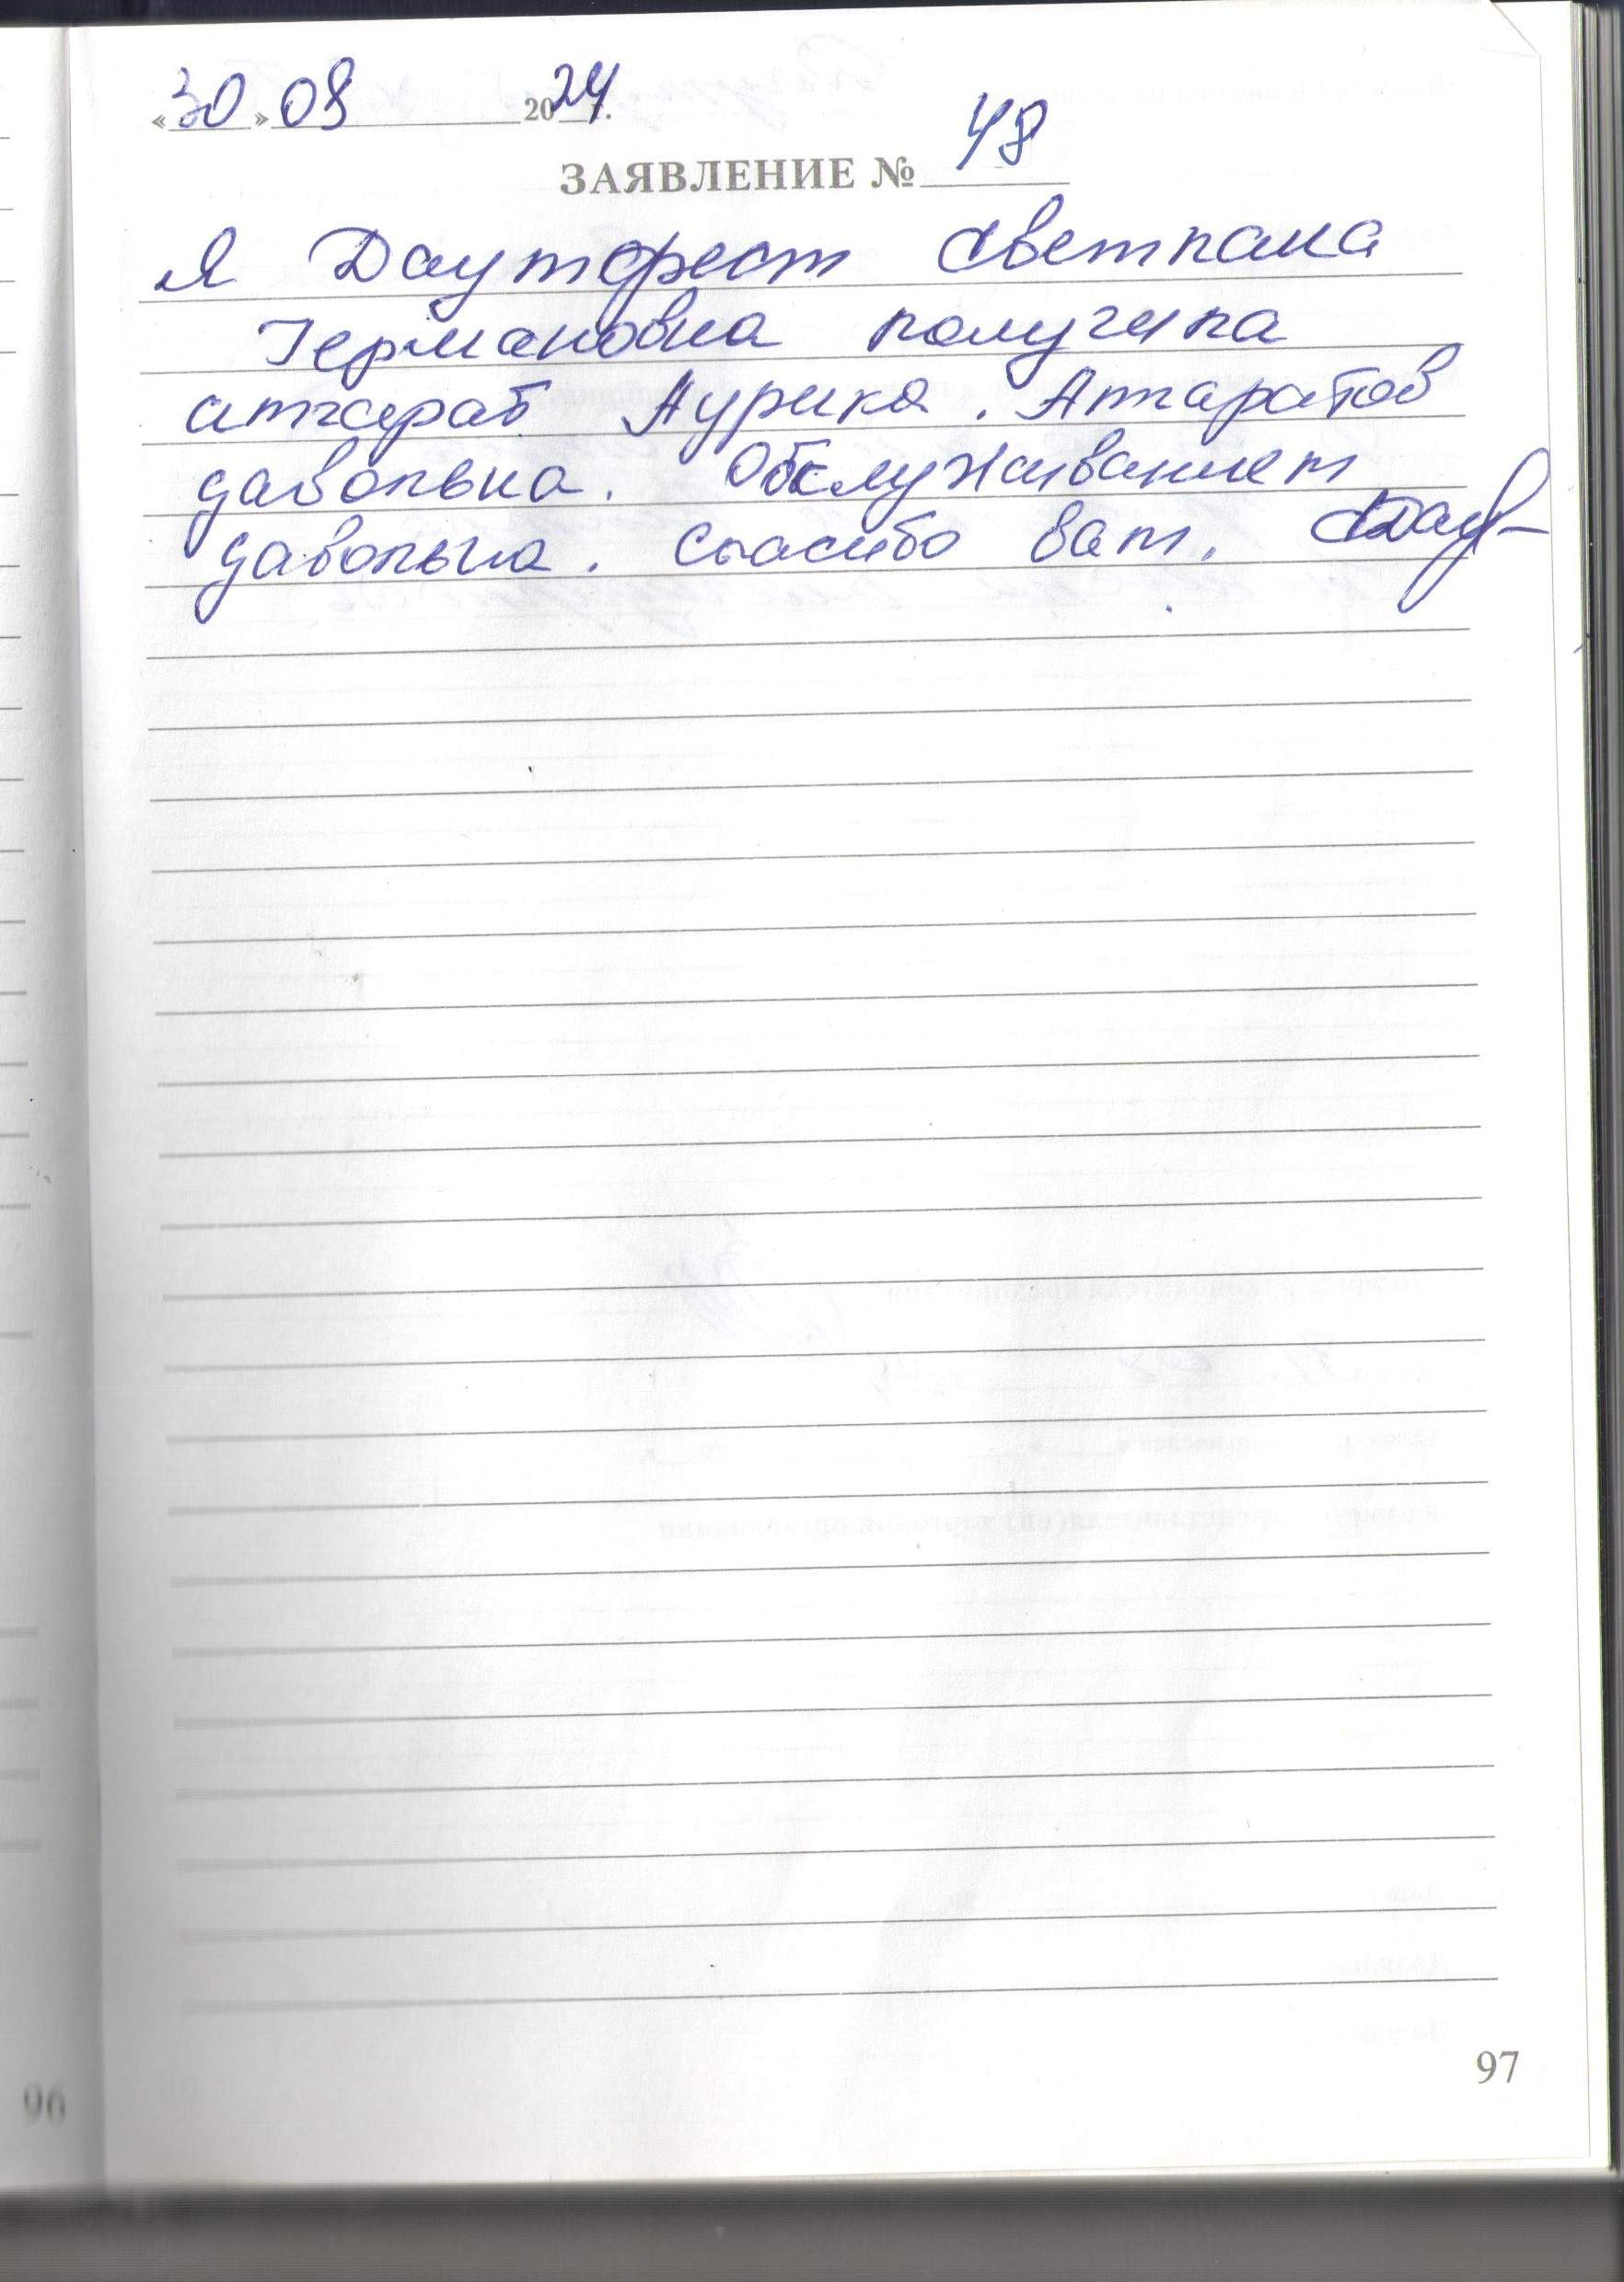 «30» 08 2024 г.
ЗАЯВЛЕНИЕ № 48
Я Даутфест Светлана
Германовна получила
аппарат Аурика. Аппаратов
давольна. Обслуживанием
давольна. Спасибо вам.
97
96